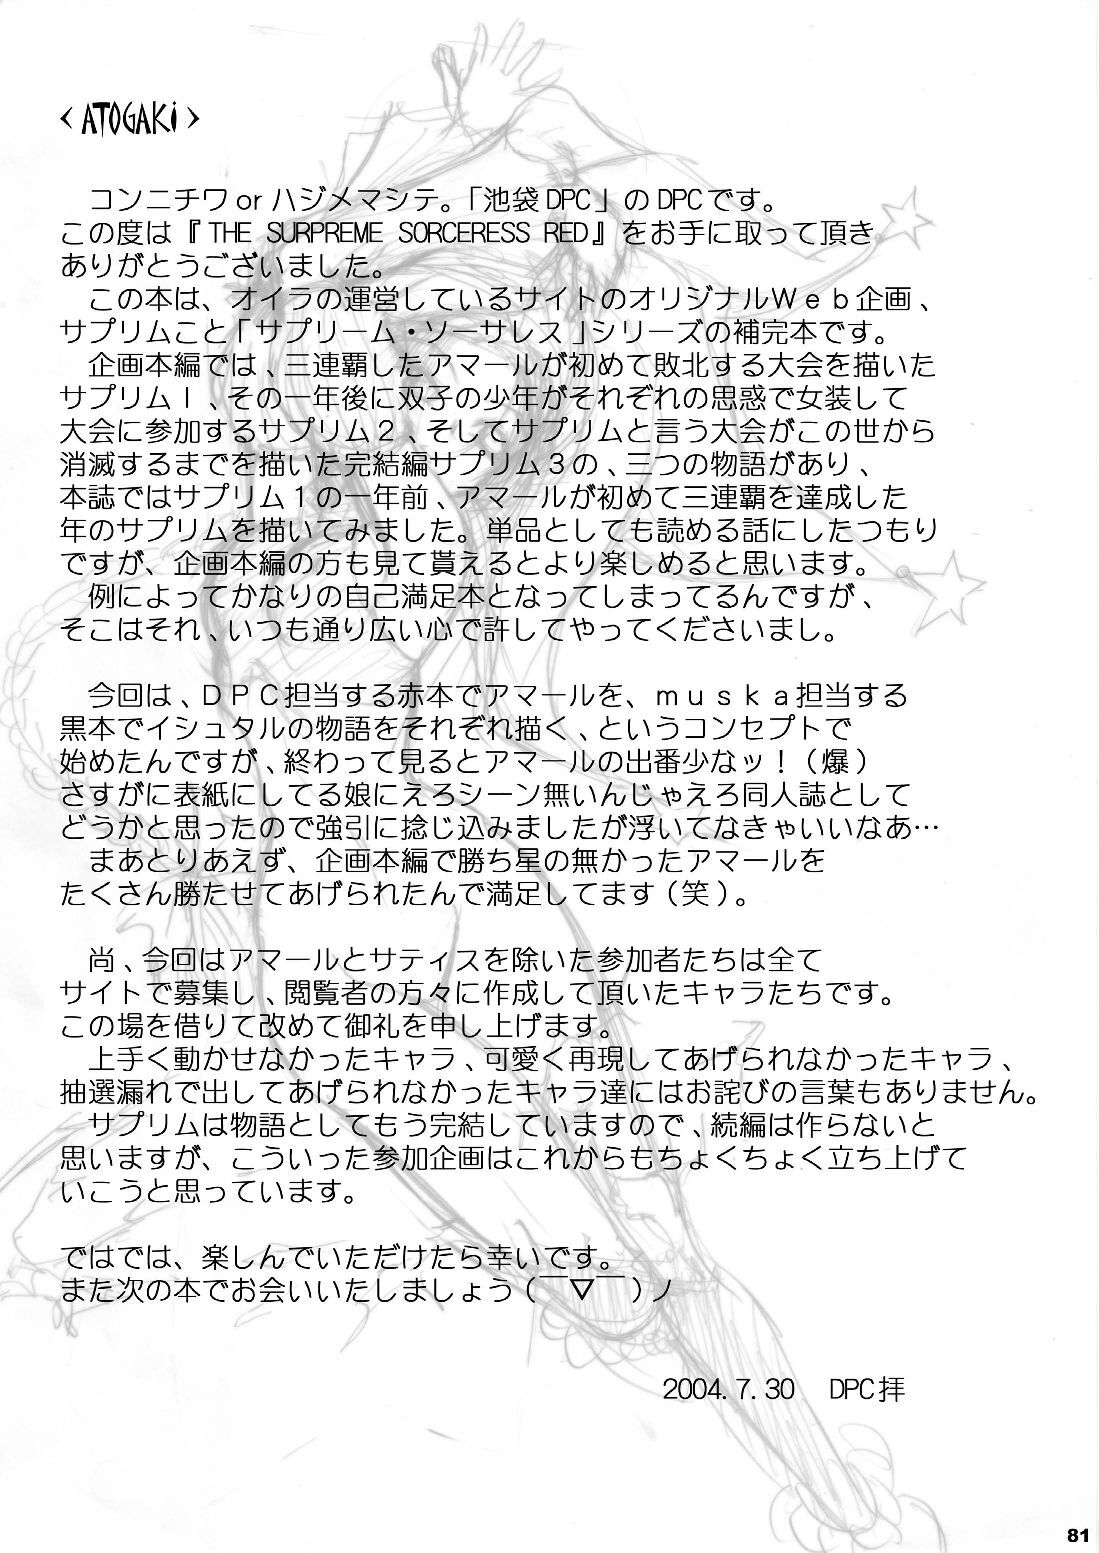 < ATOGAKi >
コンニチワ or ハジメマシテ。「池袋 DPC」の DPC です。
この度は『THE SURPREME SORCERESS RED』をお手に取って頂き
ありがとうございました。
この本は、オイラの運営しているサイトのオリジナルＷｅｂ企画、
サプリムこと「サプリーム・ソーサレス」シリーズの補完本です。
企画本編では、三連覇したアマールが初めて敗北する大会を描いた
サプリム１、その一年後に双子の少年がそれぞれの思惑で女装して
大会に参加するサプリム２、そしてサプリムと言う大会がこの世から
消滅するまでを描いた完結編サプリム３の、三つの物語があり、
本誌ではサプリム１の一年前、アマールが初めて三連覇を達成した
年のサプリムを描いてみました。単品としても読める話にしたつもり
ですが、企画本編の方も見て貰えるとより楽しめると思います。
例によってかなりの自己満足本となってしまってるんですが、
そこはそれ、いつも通り広い心で許してやってくださいまし。
今回は、ＤＰＣ担当する赤本でアマールを、ｍｕｓｋａ担当する
黒本でイシュタルの物語をそれぞれ描く、というコンセプトで
始めたんですが、終わって見るとアマールの出番少なッ！（爆）
さすがに表紙にしてる娘にえろシーン無いんじゃえろ同人誌として
どうかと思ったので強引に捻じ込みましたが浮いてなきゃいいなあ…
まあとりあえず、企画本編で勝ち星の無かったアマールを
たくさん勝たせてあげられたんで満足してます（笑）。
尚、今回はアマールとサティスを除いた参加者たちは全て
サイトで募集し、閲覧者の方々に作成して頂いたキャラたちです。
この場を借りて改めて御礼を申し上げます。
上手く動かせなかったキャラ、可愛く再現してあげられなかったキャラ、
抽選漏れで出してあげられなかったキャラ達にはお詫びの言葉もありません。
サプリムは物語としてもう完結していますので、続編は作らないと
思いますが、こういった参加企画はこれからもちょくちょく立ち上げて
いこうと思っています。
ではでは、楽しんでいただけたら幸いです。
また次の本でお会いいたしましょう（￣▽￣）ノ
2004.7.30 DPC拝
81